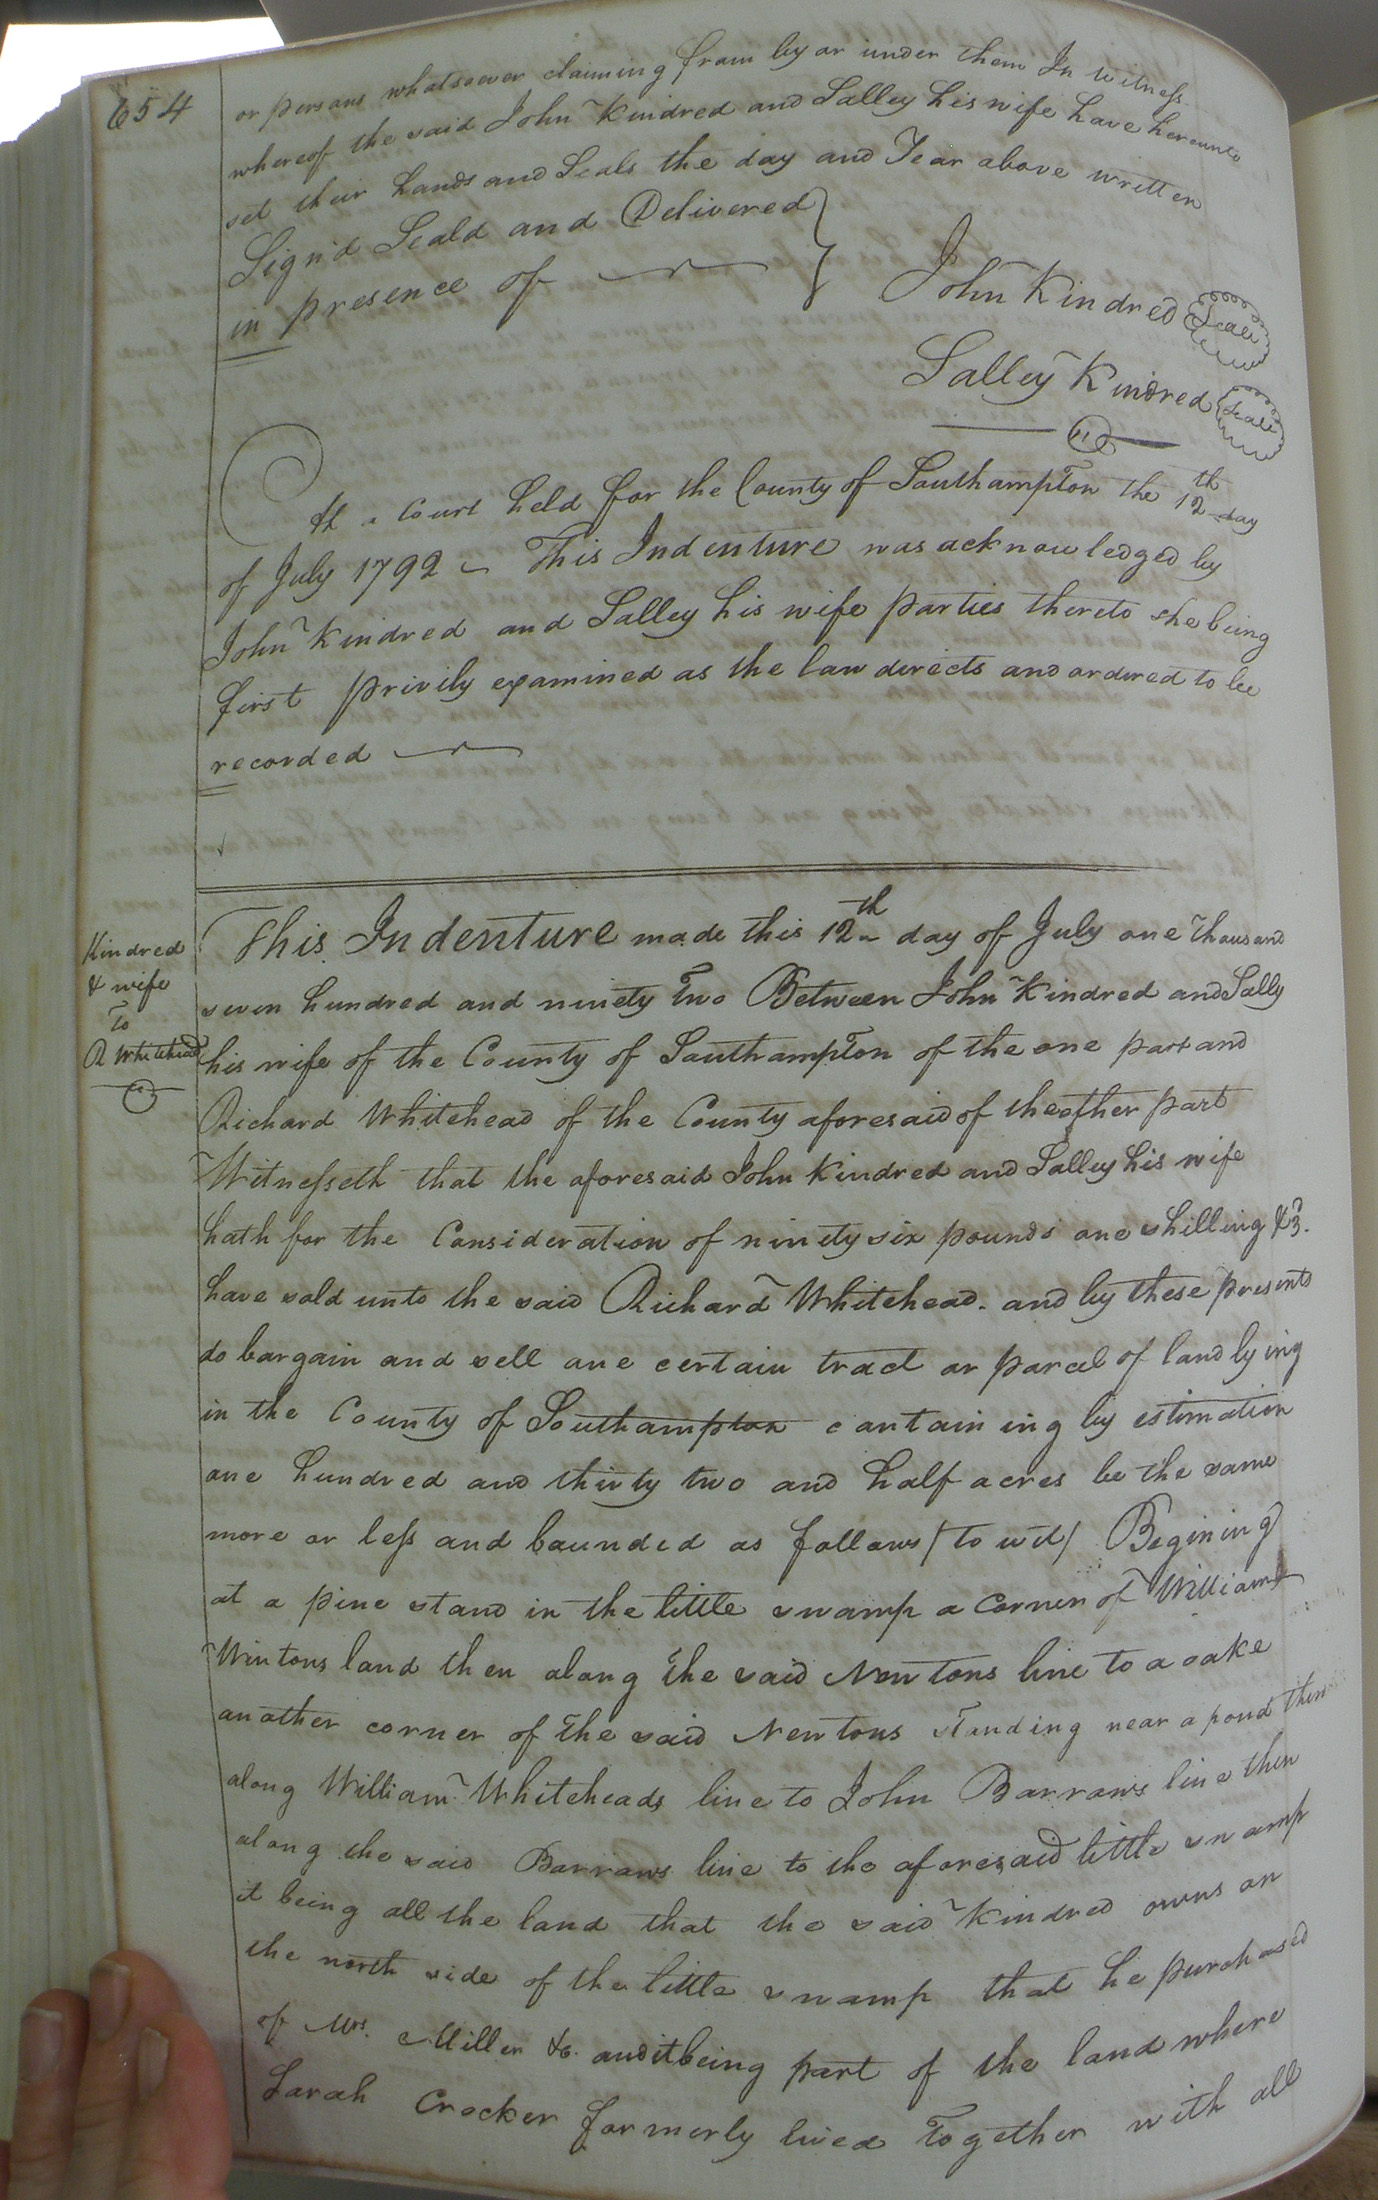 654
or persons whatsoever claiming from by or under them In Witness
whereof the said John Kindred and Salley his wife have hereunto
set their hands and Seals the day and Year above written
Sign'd Seald and Delivered
in presence of
John Kindred Seal
Salley Kindred Seal
At a Court held for the County of Southampton the 12th day
of July 1792 This Indenture was acknowledged by
John Kindred and Salley his wife parties thereto she being
first privily examined as the law directs and ordered to be
recorded
Kindred
& wife
To
R Whitehead
This Indenture made this 12th day of July one thousand
seven hundred and ninety two Between John Kindred and Sally
his wife of the County of Southampton of the one part and
Richard Whitehead of the County aforesaid of the other part
Witnesseth that the aforesaid John Kindred and Salley his wife
hath for the Consideration of ninety six pounds one shilling & 3.
have sold unto the said Richard Whitehead. and by these presents
do bargain and sell one certain tract or parcel of land lying
in the County of Southampton containing by estimation
one hundred and thirty two and half acres be the same
more or less and bounded as follows / to wit / Begining
at a pine stand in the little swamp a Corner of William
Wintons land then along the said Newtons line to a oake
another corner of the said Newtons standing near a pond then
along William Whiteheads line to John Barraws line then
along the said Barraws line to the aforesaid little swamp
it being all the land that the said Kindred owns on
the north side of the little swamp that he purchased
of Mrs. Miller &c. and it being part of the land where
Sarah Crocker formerly lived Together with all